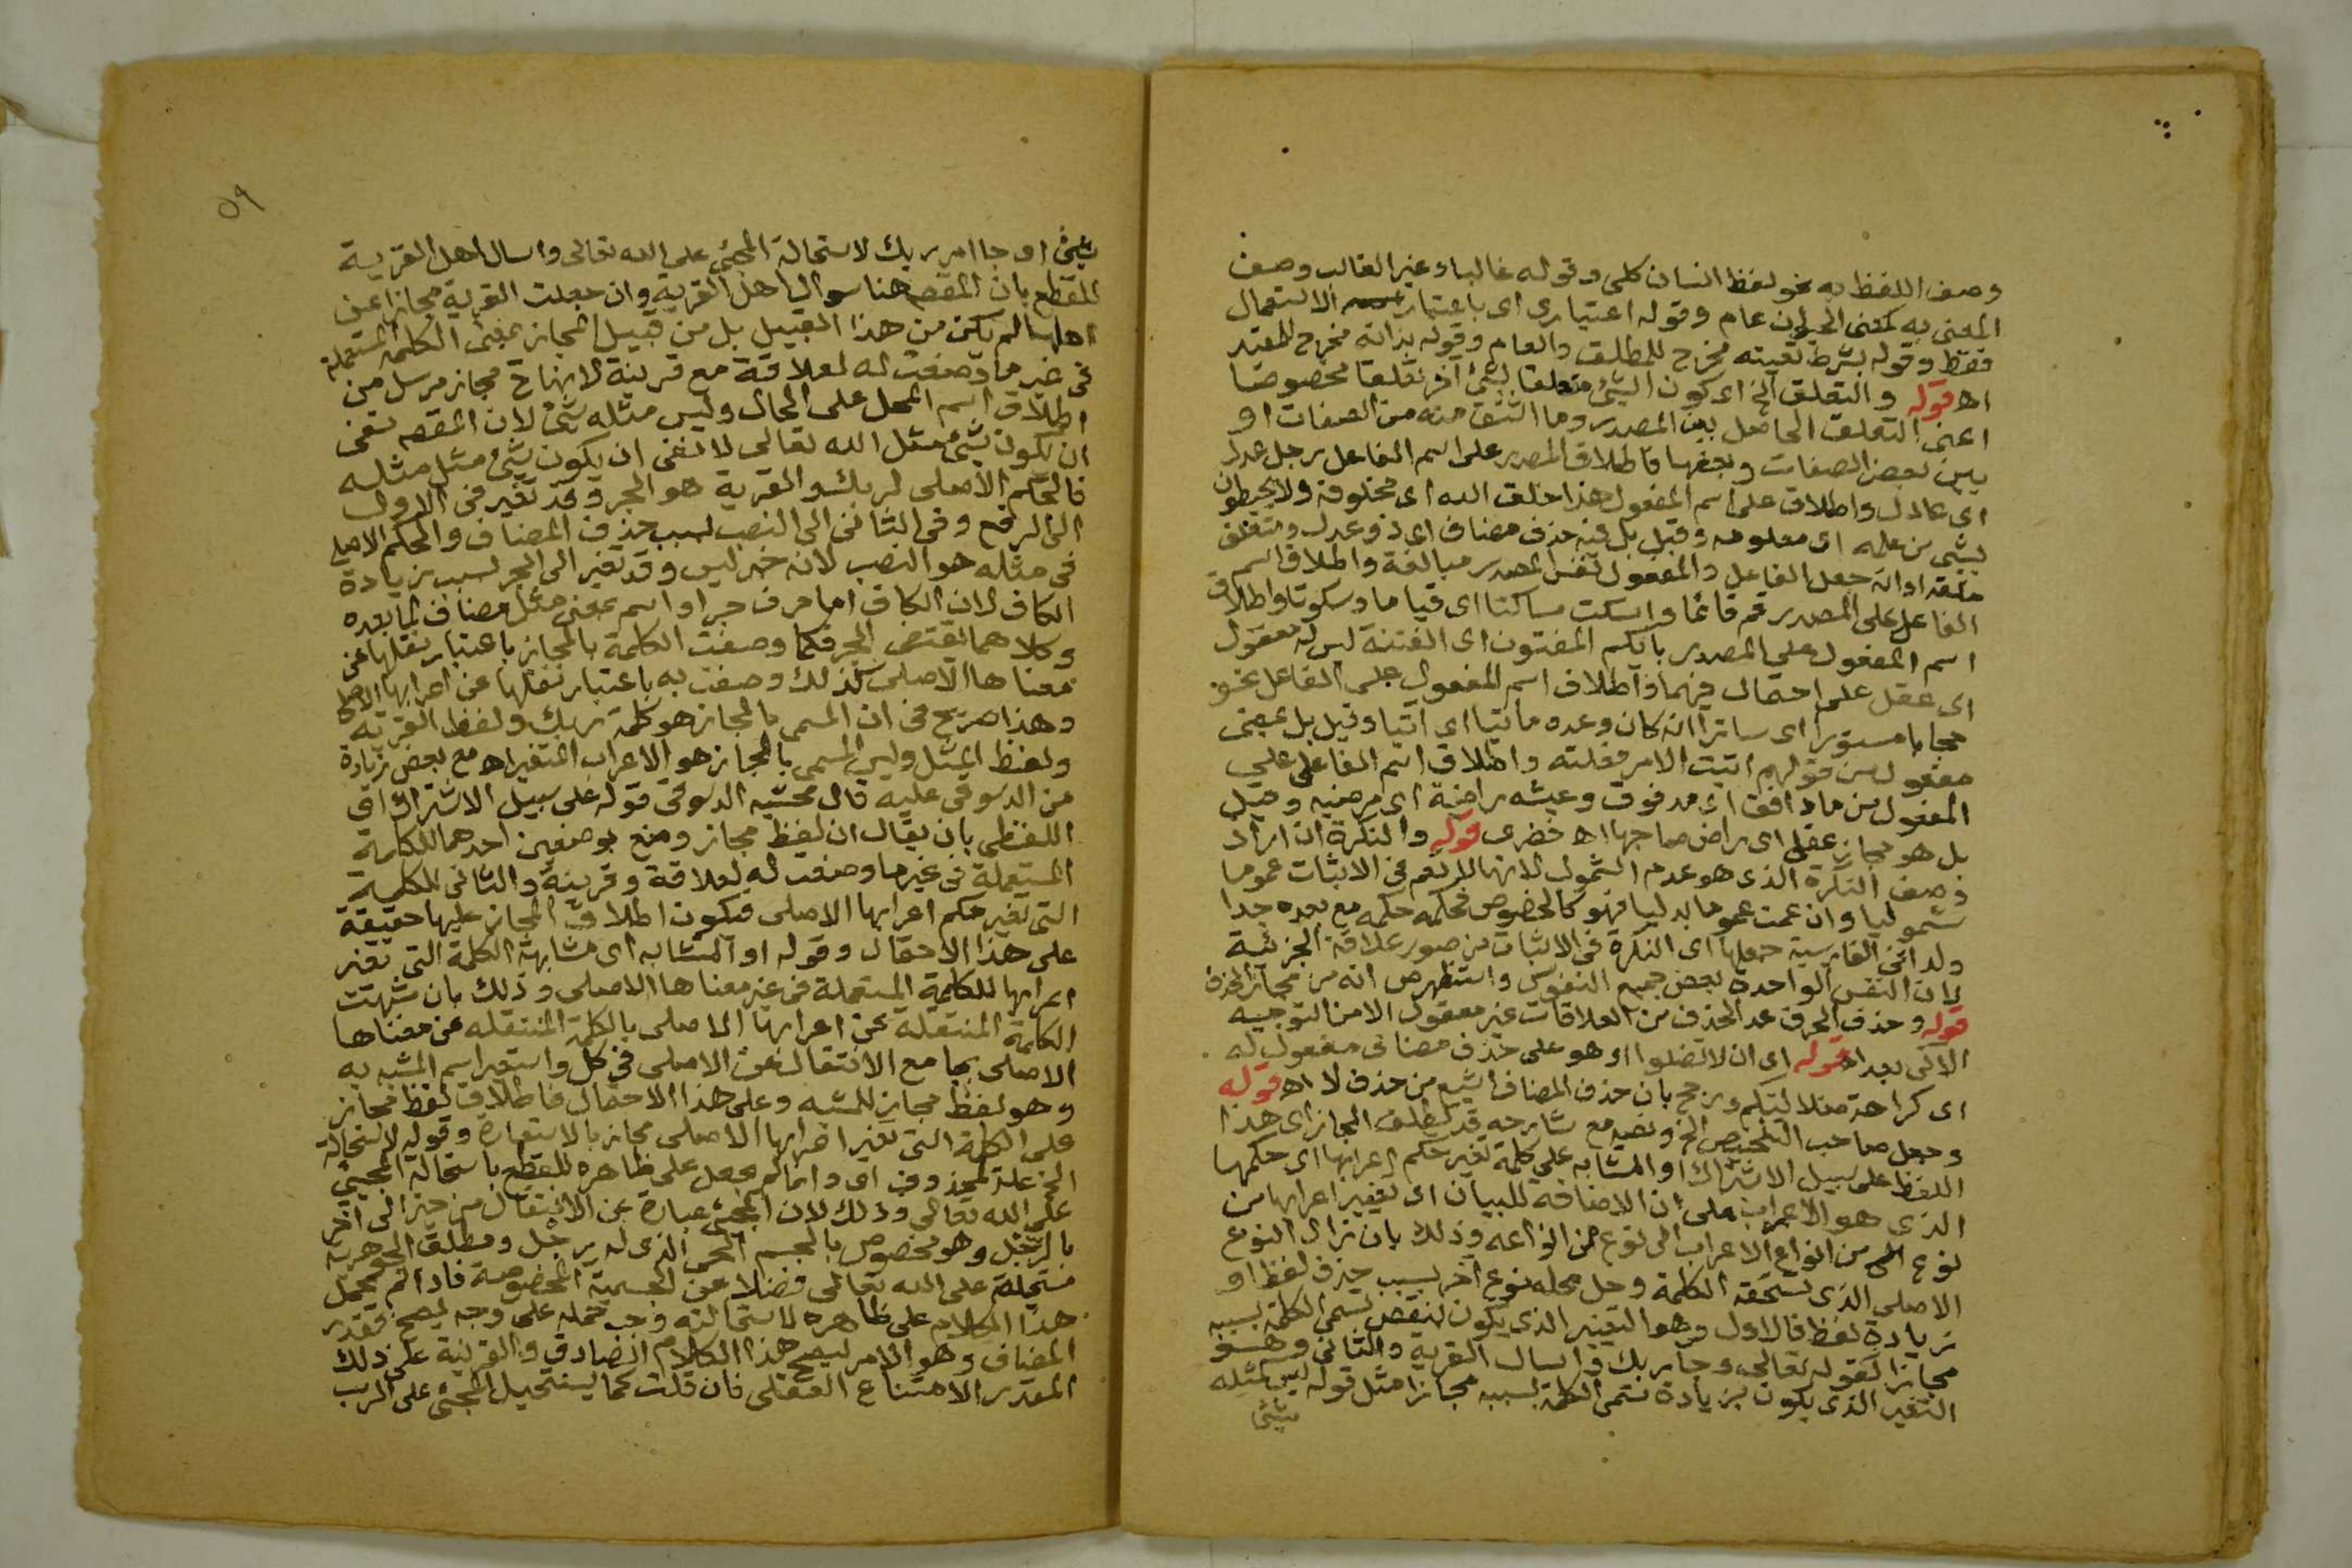 وصف اللفظ به نحو لفظ انسان كلى وقوله غالبا وغير الغالب وصف
المعنى به كمعنى الحيوان عام وقوله اعتيارى اى باعتبار الاستعمال
فقط وقوله بشرط تعينه مخرج للمطلق والعام وقوله بذاته مخرج للمقيد
اه قوله والتعلق الخ اى كون الشئ متعلقا بشئ آخر تعلقا مخصوصا
اعنى التعلق الحاصل بين المصدر وما اشتق منه من الصفات او
بين بعض الصفات وبعضها فاطلاق المصدر على اسم الفاعل رجل عدل
اى عادل واطلاق على اسم المفعول هذا خلق الله اى مخلوقه ولا يحيطون
بشئ من علمه اى معلومه وقيل بل فيه حذف مضاف اى ذو عدل ومتعلق
خلقه او انه جعل الفاعل والمفعول نفس المصدر مبالغة واطلاق اسم
الفاعل على المصدر قم قائما واسكت ساكتا اى قياما وسكوتا واطلاق
اسم المفعول على المصدر بايكم المفتون اى الفتنة ليس له معقول
اى عقل على احتمال فيهما واطلاق اسم المفعول على الفاعل نحو
حجابا مستورا اى ساترا انه كان وعده مأتيا اى آتيا وقيل بل بمعنى
مفعول من قولهم اتيت الامر فعلته واطلاق اسم الفاعل على
المفعول من ماء دافق اى مدفوق وعيشه راضية اى مرضيه وقيل
بل هو مجاز عقلى اى راض صاحبها اه خضرى قوله والنكرة ان اراد
وصف النكرة الذى هو عدم الشمول لانها للا تعم فى الاثبات عموما
شموليا وان عمت عموما بدليا فهو كالخصوص فحكمه حكمه مع بعده جدا
ولذا فى الفارسية جعلها اى النكرة فى الاثبات من صور علاقة الجزئية
لان النفس الواحدة بعض جميع النفوس واستظهر ص انه من مجاز الحذف
قوله وحذف الحرف عد الحذف من العلاقات غير معقول الا من التوجيه
الآتى بعد اه قوله اى ان لا تضلوا او هو على حذف مضاف مفعول له
اى كراهة ضلالتكم ورجح بان حذف المضاف اشيع من حذف لا اه قوله
وجعل صاحب التلخيص الخ ونصه مع شارحه قد يطلق المجاز اى هذا
اللفظ على سبيل الاشتراك او المشابه على كلمة تغير حكم اعرابها اى حكمها
الذى هو الاعراب على ان الاضافة للبيان اى تغيير اعرابها من
نوع من انواع الاعراب الى نوع من انواعه وذلك بان زال النوع
الاصلى الذى تستحقه الكلمة وحل محله نوع آخر بسبب حذف لفظ او
زيادة لفظ فالاول وهو التغيير الذى يكون لنقص تسمى الكلمة بسببه
مجازا كقوله تعالى وجاء ربك واسال القرية والثانى وهو
التغير الذى يكون بزيادة تسمى الكلمة بسببه مجازا مثل قوله ليس كمثله
شئ
٥٩
شئ اى وجا امر ربك لاستحالة المجئ على الله تعالى واسال اهل القرية
للقطع بان المقصد هنا سوال اهل القرية وان جعلت القرية مجازا عن
اهلها لم يكن من هذا القبيل بل من قبيل المجاز بمعنى الكلمة المستعملة
فى غير ما وضعت له لعلاقة مع قرينة لانها ح مجاز مرسل من
اطلاق اسم المحل على الحال وليس مثله شئ لان المقصد نفى
ان يكون شئ مثل الله تعالى لا نفى ان يكون شئ مثل مثله
فالحكم الاصلى لربك والقرية هو الجر وقد تغير فى الاول
الى الرفع وفى الثانى الى النصب لسبب حذف المضاف والحكم الاصلى
فى مثله هو النصب لانه خبر ليس وقد تغير الى الجر بسبب زيادة
الكاف لان الكاف اما حرف جر او اسم بمعنى مثل مضاف لما بعده
وكلاهما يقتضى الجر فكما وصفت الكلمة بالمجاز باعتبار نقلها عن
معناها الاصلى كذلك وصفت به باعتبار نقلها عن اعرابها الاصلى
وهذا صريح فى ان المسمى بالمجاز هو كلمة ربك ولفظ القرية
ولفظ المثل وليس المسمى بالمجاز هو الاعراب المتغير اه مع بعض زيادة
من الدسوقى عليه قال محشيه الدسوقى قوله على سبيل الاشتراك اى
اللفظى بان يقال ان لفظ مجاز وضع بوضعين احدهما للكلمة
المستعملة فى غير ما وضعت له لعلاقة وقرينة والثانى للكلمة
التى تغير حكم اعرابها الاصلى فيكون اطلاق المجاز عليها حقيقة
على هذا الاحتمال وقوله او المتشابه اى مشابهة الكلمة التى تغير
اعرابها للكلمة المستعملة فى غير معناها الاصلى وذلك بان شبهت
الكلمة المنتقلة عن اعرابها الاصلى بالكلمة المنتقلة عن معناها
الاصلى بجامع الانتقال عن الاصلى فى كل واستعير اسم المشبه به
وهو لفظ مجاز للمشبه وعلى هذا الاحتمال فاطلاق لفظ مجاز
على الكلمة التى تغير اعرابها الاصلى مجاز بالاستعارة وقوله لاستحالة
الخ علة لمحذوف اى وانما لم يحمل على ظاهره للقطع باستحالة المجئ
على الله تعالى وذلك لان المجئ عبارة عن الانتقال من حيز الى آخر
بالرجل وهو مخصوص بالجسم الحى الذى له رجل ومطلق الجوهرية
مستحيلة على الله تعالى فضلا عن الجسمية المخصوصة فاذا لم يحمل
هذا الكلام على ظاهره لاستحالته وجب حمله على وجه يصح فقدر
المضاف وهو الامر ليصح هذا الكلام الصادق والقرينة على ذلك
المقدر الامتناع العقلى فان قلت كما يستحيل المجئ على الرب